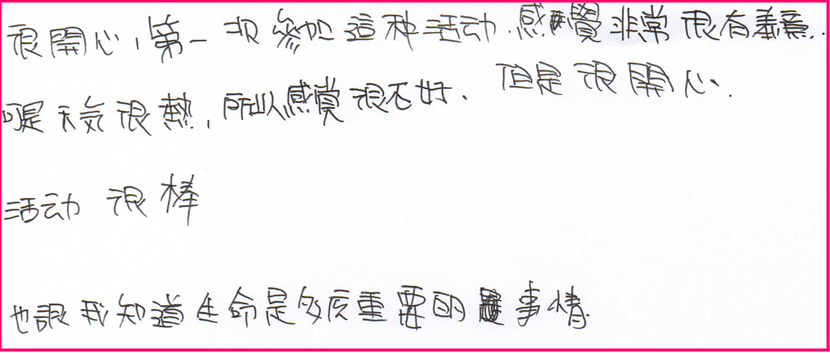 很開心,第一次參加這种活动.感覺非常很有義意.
是天気很熱,所以感覚很不好、但是很開心、
活动 很棒
也讓我知道生命是多麼重要的事情